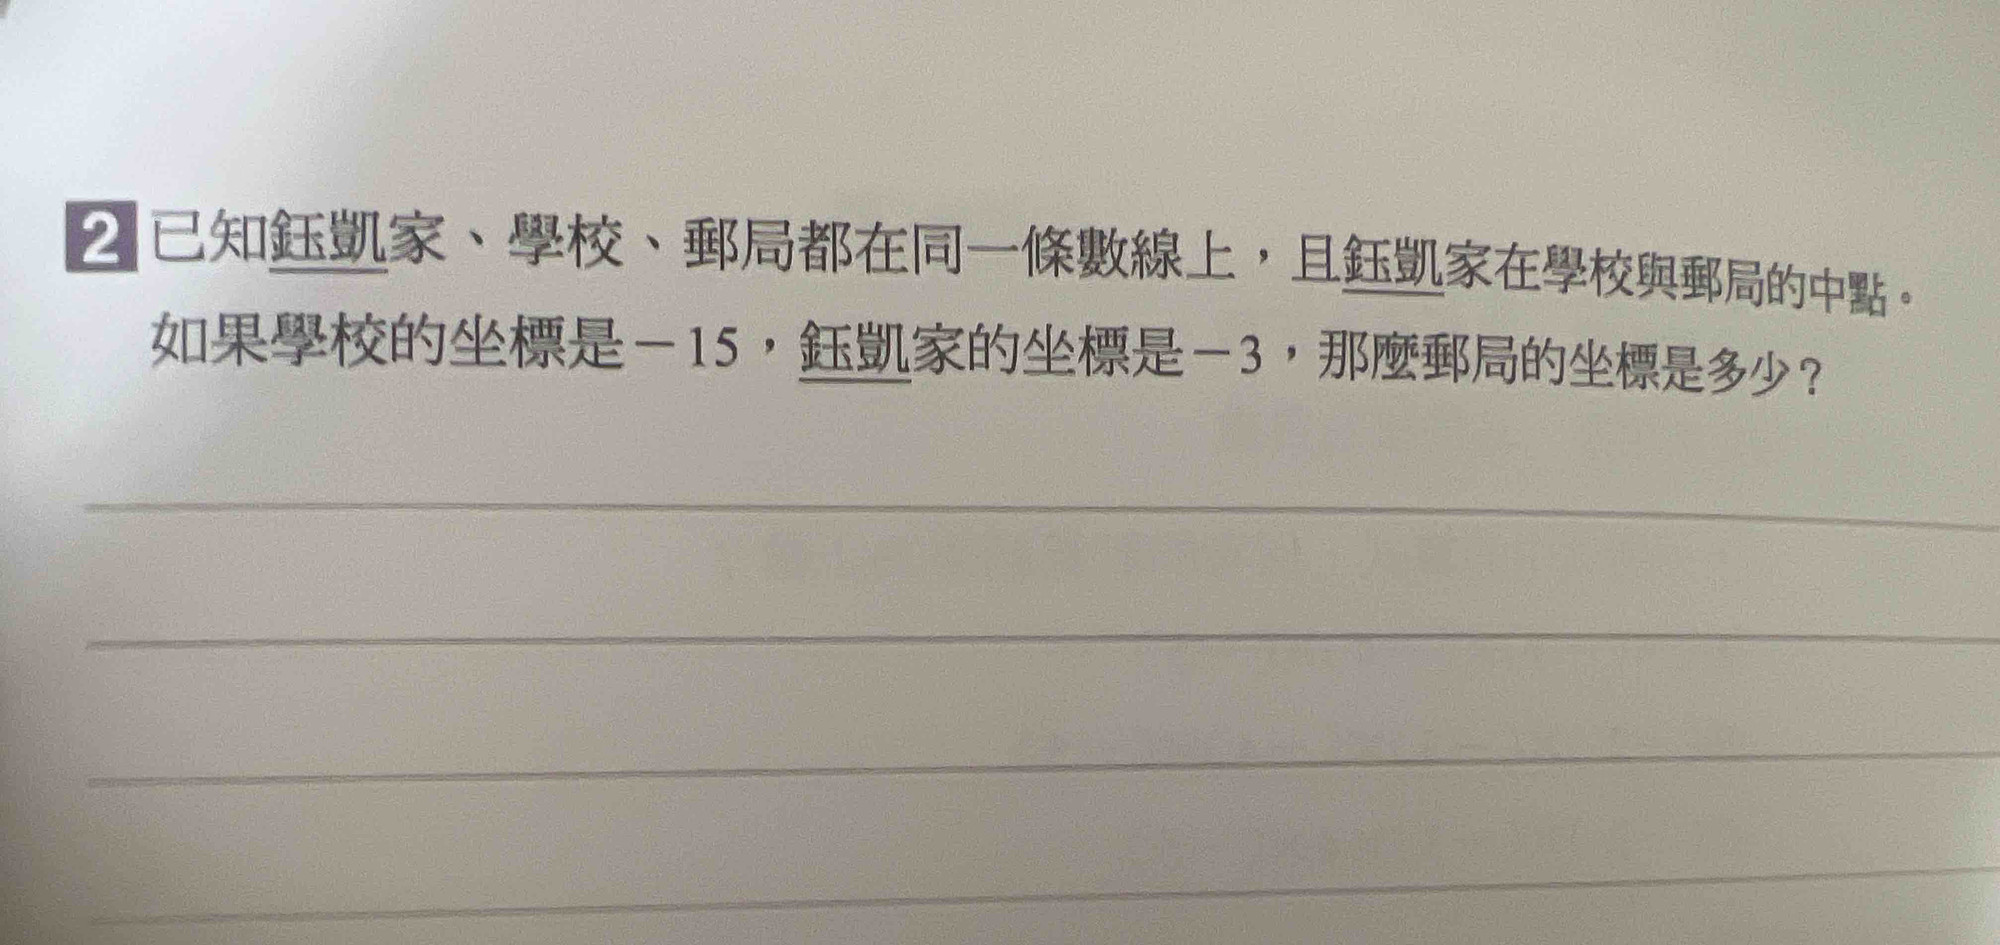 2 已知鈺凱家、學校、郵局都在同一條數線上，且鈺凱家在學校與郵局的中點。
如果學校的坐標是－15，鈺凱家的坐標是－3，那麼郵局的坐標是多少？